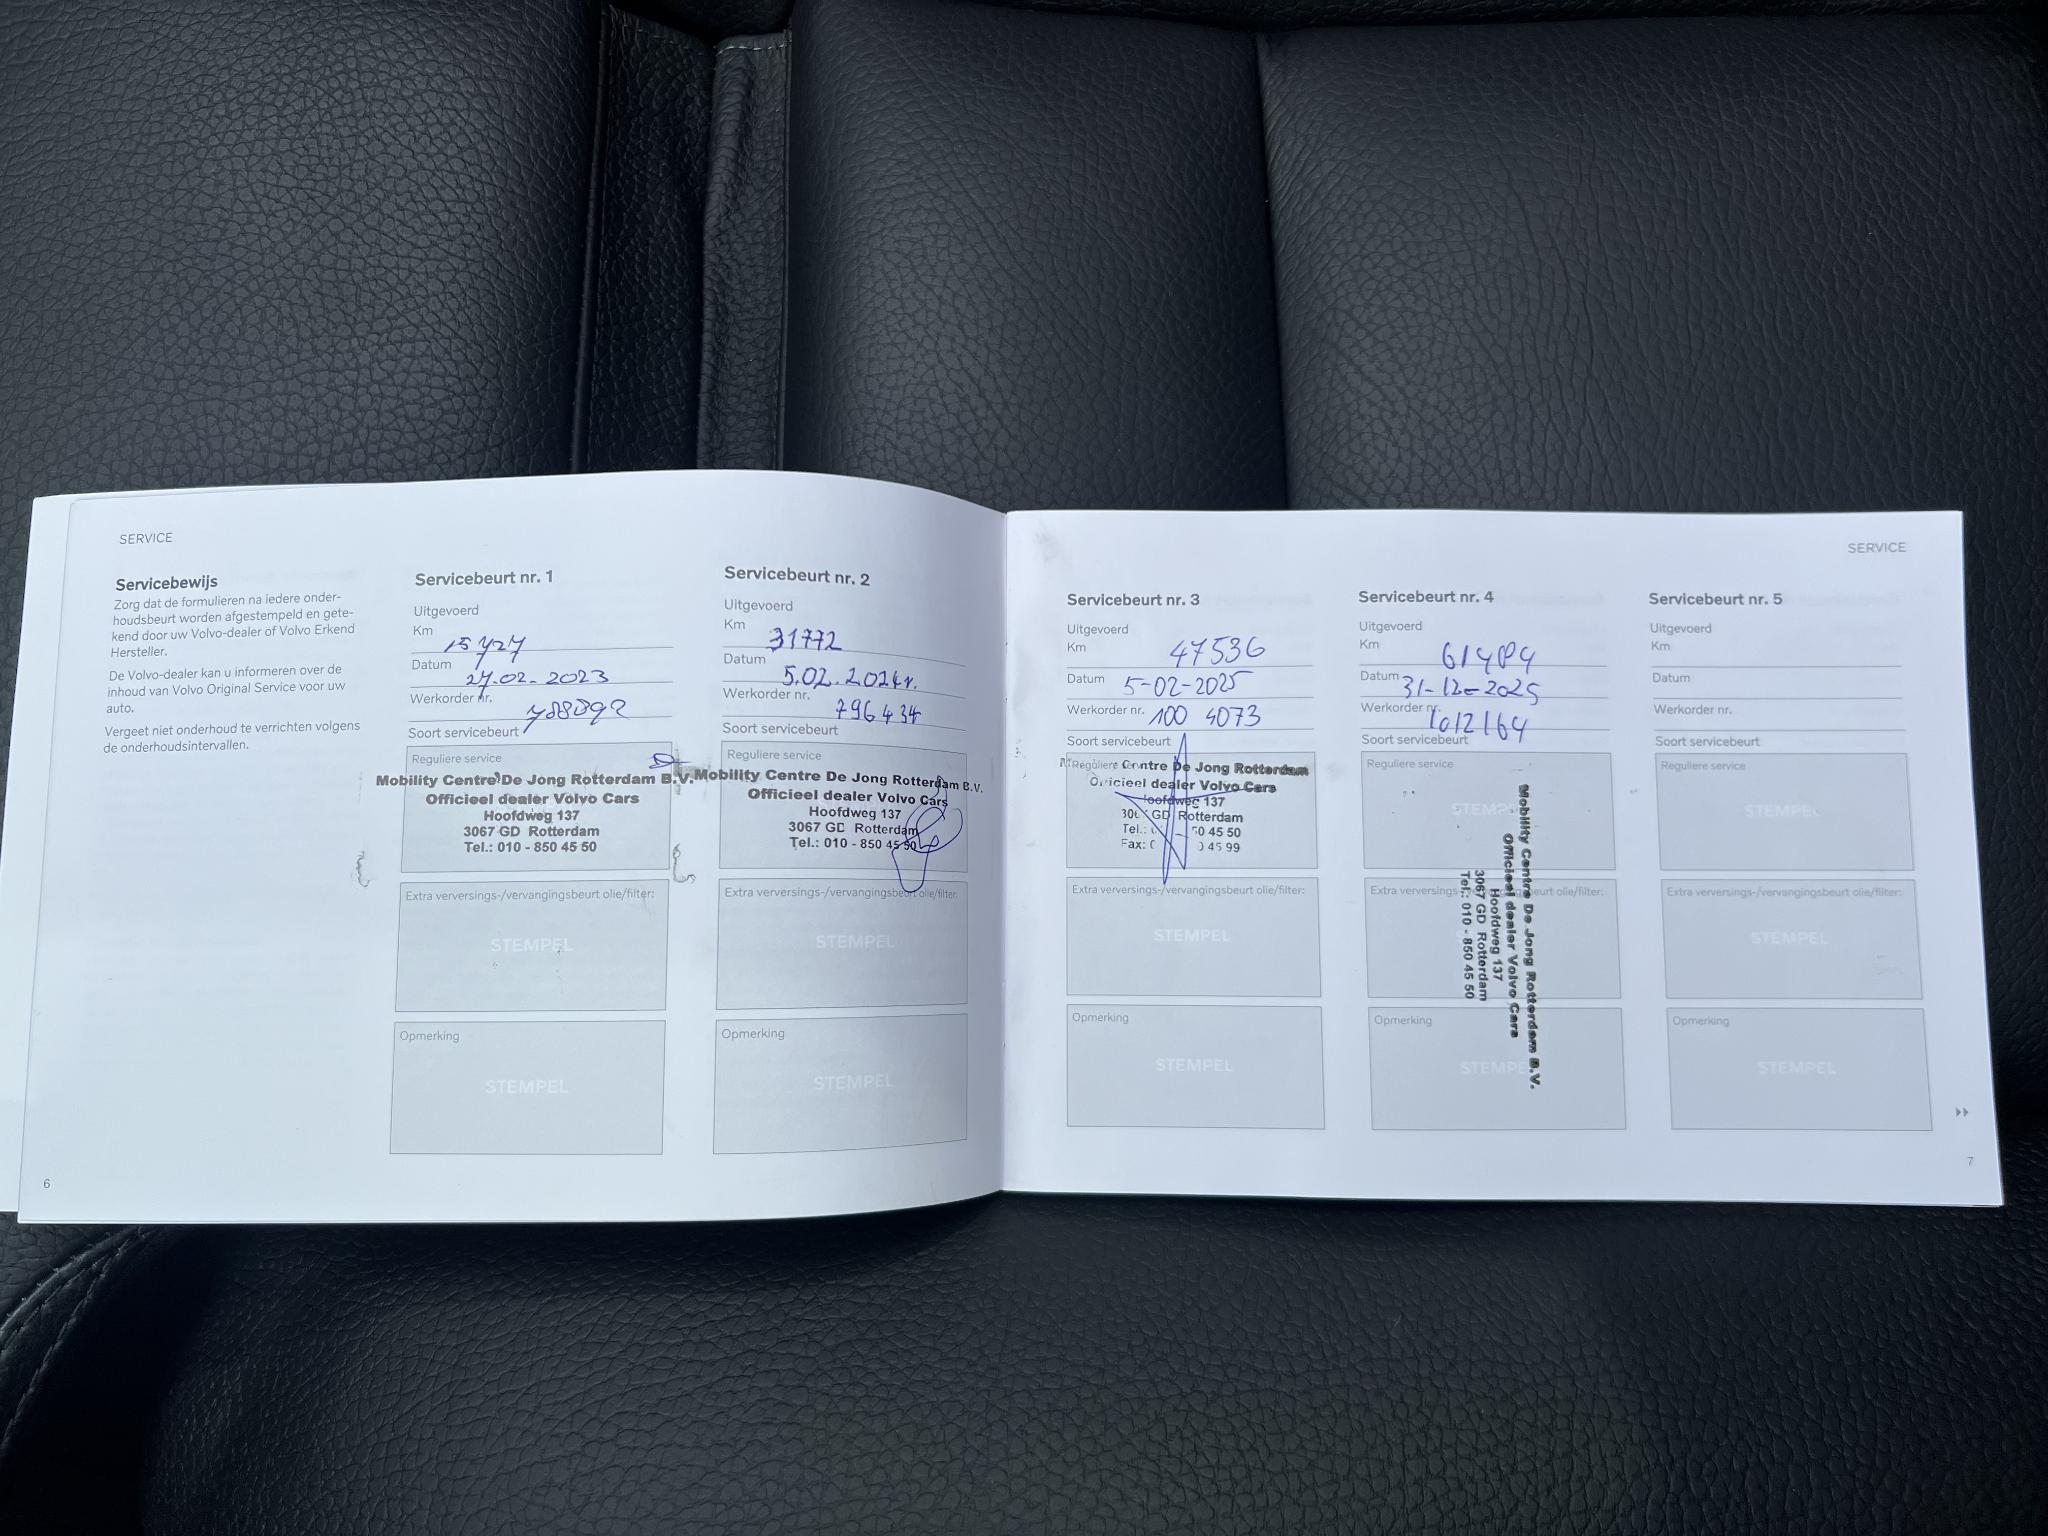 SERVICE
Servicebewijs
Zorg dat de formulieren na iedere onder-
houdsbeurt worden afgestempeld en gete-
kend door uw Volvo-dealer of Volvo Erkend
Hersteller.
De Volvo-dealer kan u informeren over de
inhoud van Volvo Original Service voor uw
auto.
Vergeet niet onderhoud te verrichten volgens
de onderhoudsintervallen.
6
Servicebeurt nr. 1
Uitgevoerd
Km
Datum 27.02.2023
Werkorder nr.
Soort servicebeurt
Reguliere service
Mobility Centre De Jong Rotterdam B.V.
Officieel dealer Volvo Cars
Hoofdweg 137
3067 GD Rotterdam
Tel.: 010 - 850 45 50
Extra verversings-/vervangingsbeurt olie/filter:
STEMPEL
Opmerking
STEMPEL
Servicebeurt nr. 2
Uitgevoerd
Km 31772
Datum 5.02.2024r.
Werkorder nr. 796434
Soort servicebeurt
Reguliere service
Mobility Centre De Jong Rotterdam B.V.
Officieel dealer Volvo Cars
Hoofdweg 137
3067 GD Rotterdam
Tel.: 010 - 850 45 50
Extra verversings-/vervangingsbeurt olie/filter:
STEMPEL
Opmerking
STEMPEL
SERVICE
Servicebeurt nr. 3
Uitgevoerd
Km 47536
Datum 5-02-2025
Werkorder nr. 100 4073
Soort servicebeurt
Reguliere service
Centre De Jong Rotterdam
Officieel dealer Volvo Cars
Hoofdweg 137
GD Rotterdam
Tel.: 50 45 50
Fax: 0 45 99
Extra verversings-/vervangingsbeurt olie/filter:
STEMPEL
Opmerking
STEMPEL
Servicebeurt nr. 4
Uitgevoerd
Km
Datum 31-12-2025
Werkorder nr. 1012164
Soort servicebeurt
Reguliere service
STEMPEL
Mobility Centre De Jong Rotterdam B.V.
Officieel dealer Volvo Cars
Hoofdweg 137
3067 GD Rotterdam
Tel.: 010 - 850 45 50
Extra verversings-/vervangingsbeurt olie/filter:
Opmerking
STEMPEL
Servicebeurt nr. 5
Uitgevoerd
Km
Datum
Werkorder nr.
Soort servicebeurt
Reguliere service
STEMPEL
Extra verversings-/vervangingsbeurt olie/filter:
STEMPEL
Opmerking
STEMPEL
7